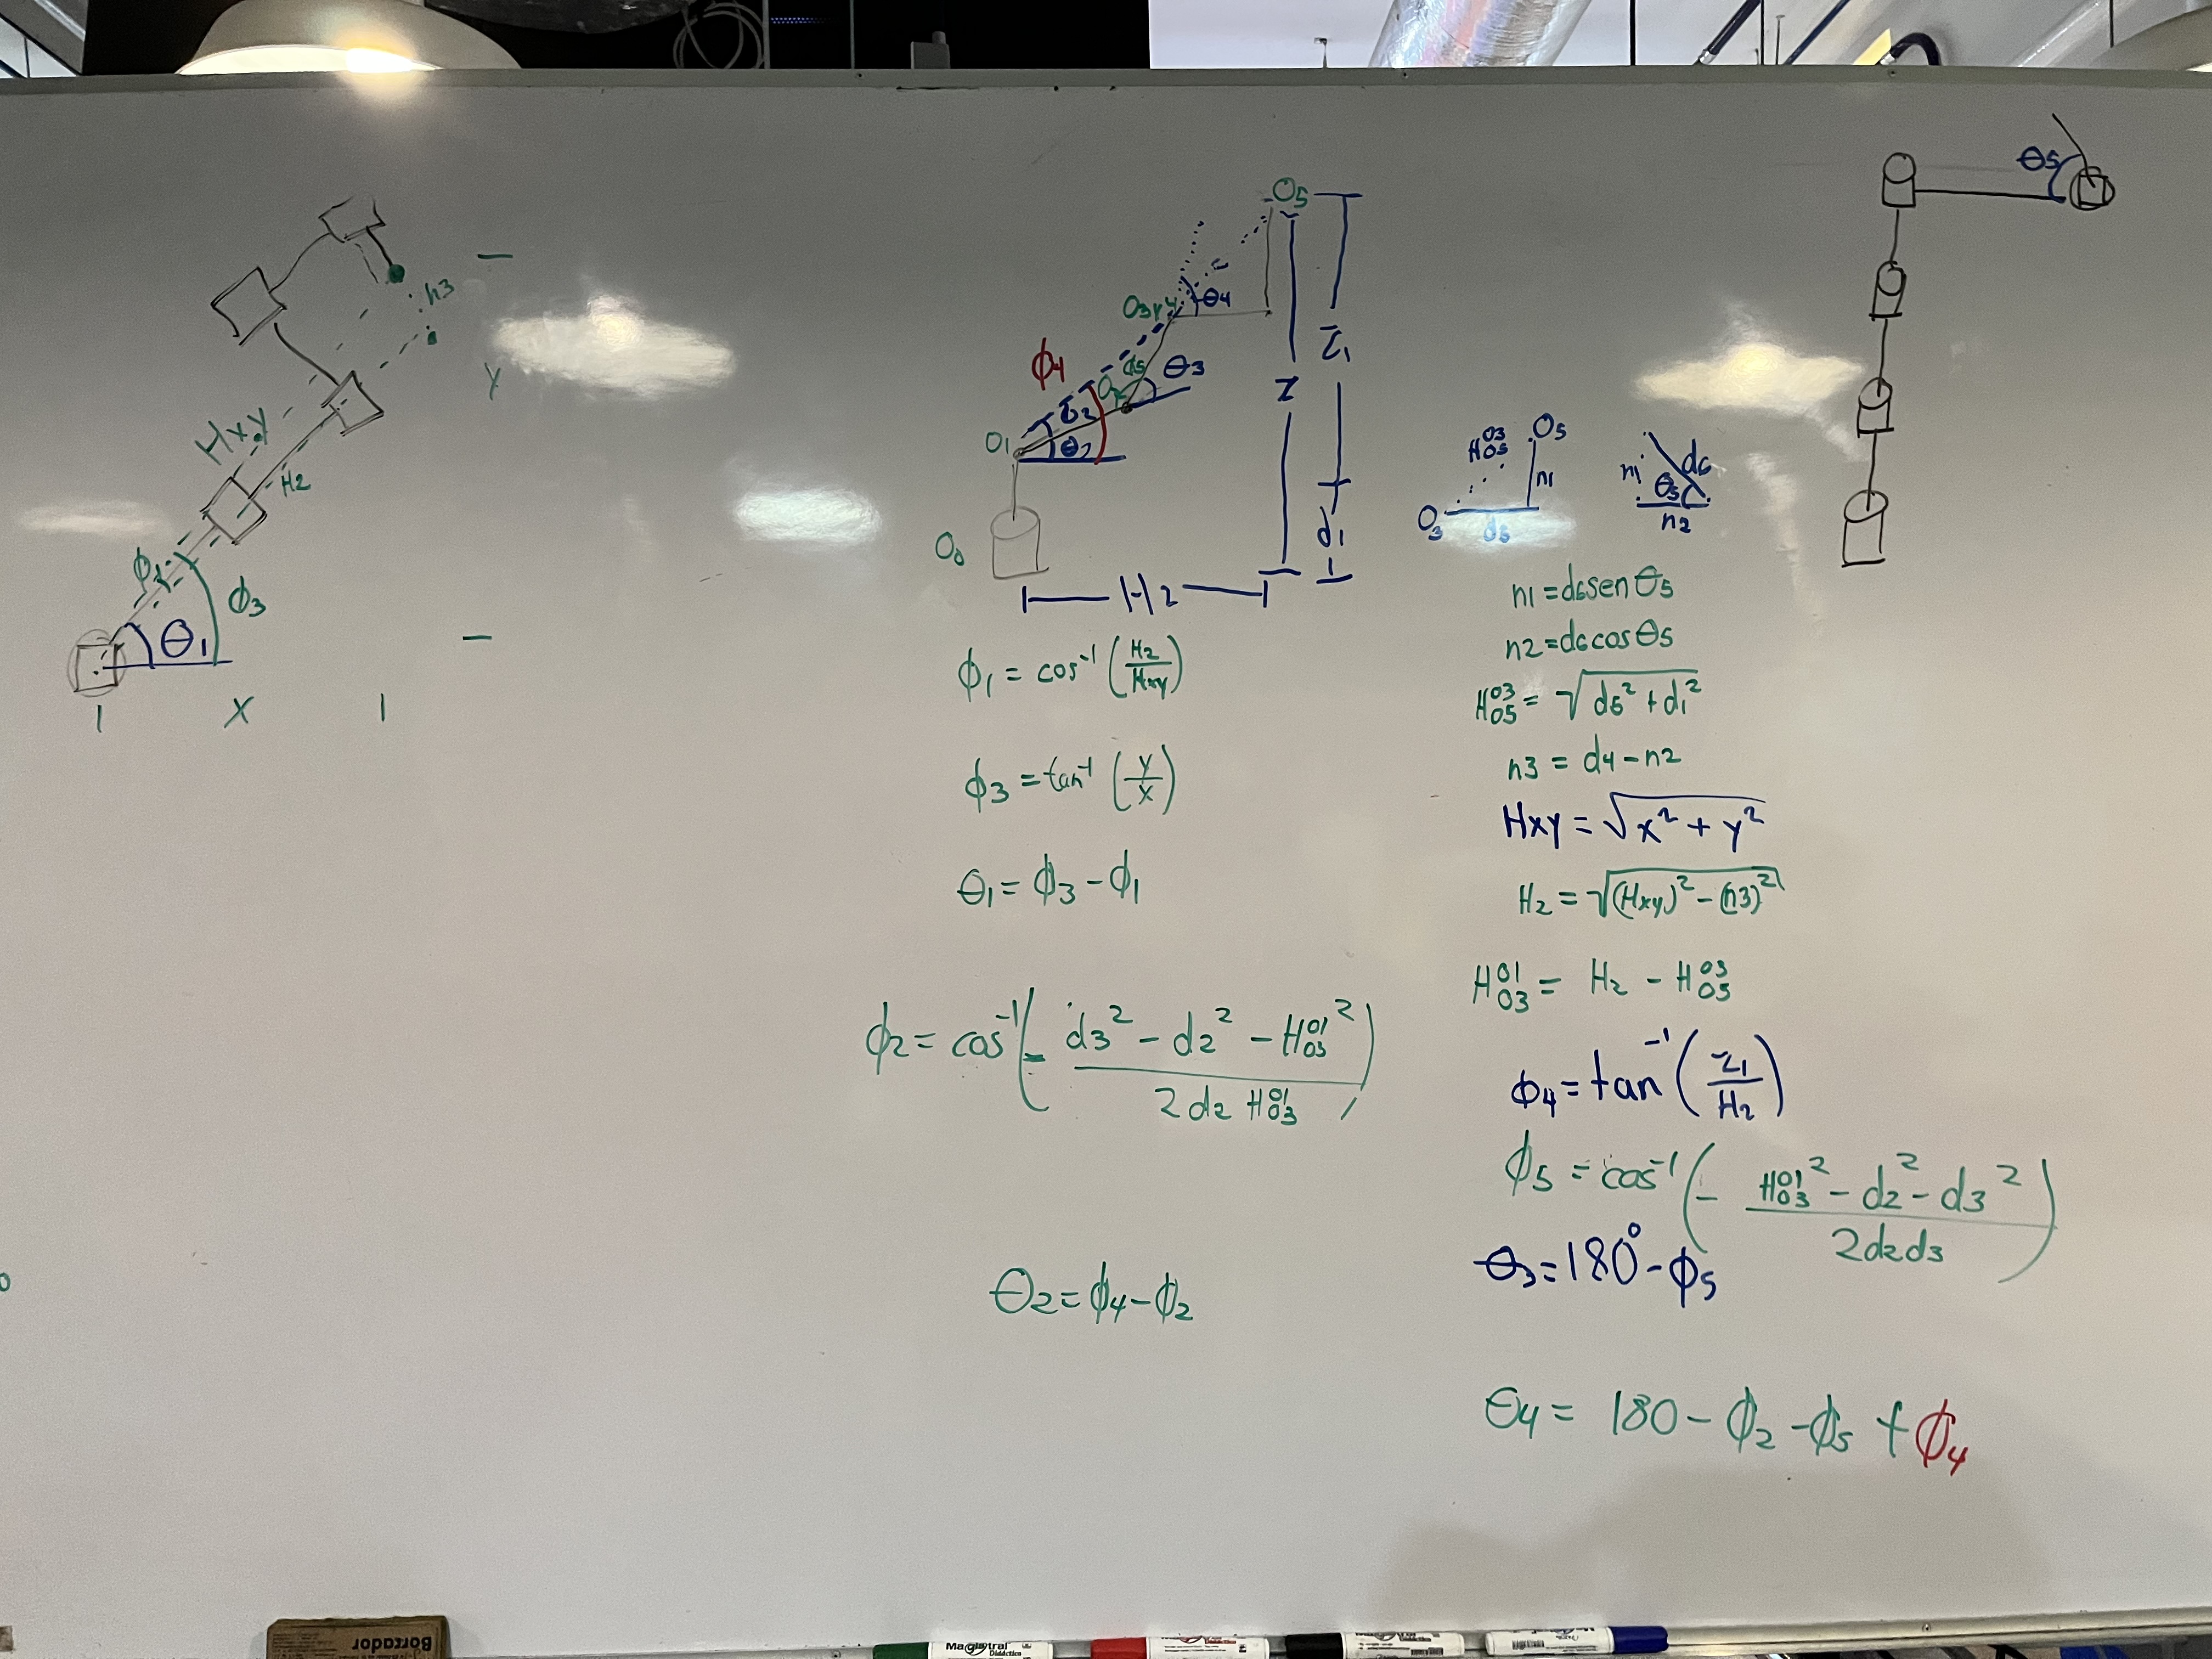 h3
Y
Hxy
H2
ϕ1
ϕ3
θ1
X
O5
θ4
Z1
O3y4
ϕ4
d5
θ3
O2
Z
ϕ2
O1
θ2
d1
O0
H2
ϕ1 = cos⁻¹ (H2/Hxy)
ϕ3 = tan⁻¹ (y/x)
θ1 = ϕ3 - ϕ1
ϕ2 = cos⁻¹ (- (d3² - d2² - H⁰¹₀₃²)/(2d2 H⁰¹₀₃))
θ2 = ϕ4 - ϕ2
θ5
H⁰³₀₅
O5
n1
O3
d5
n1
d6
θ5
n2
n1 = d6sen θ5
n2 = d6cos θ5
H⁰³₀₅ = √(d5² + d1²)
n3 = d4 - n2
Hxy = √(x² + y²)
H2 = √((Hxy)² - (n3)²)
H⁰¹₀₃ = H2 - H⁰³₀₅
ϕ4 = tan⁻¹ (Z1/H2)
ϕ5 = cos⁻¹ (- (H⁰¹₀₃² - d2² - d3²)/(2d2d3))
θ3 = 180° - ϕ5
θ4 = 180 - ϕ2 - ϕ5 + ϕ4
Borrador
Magistral
Didáctico